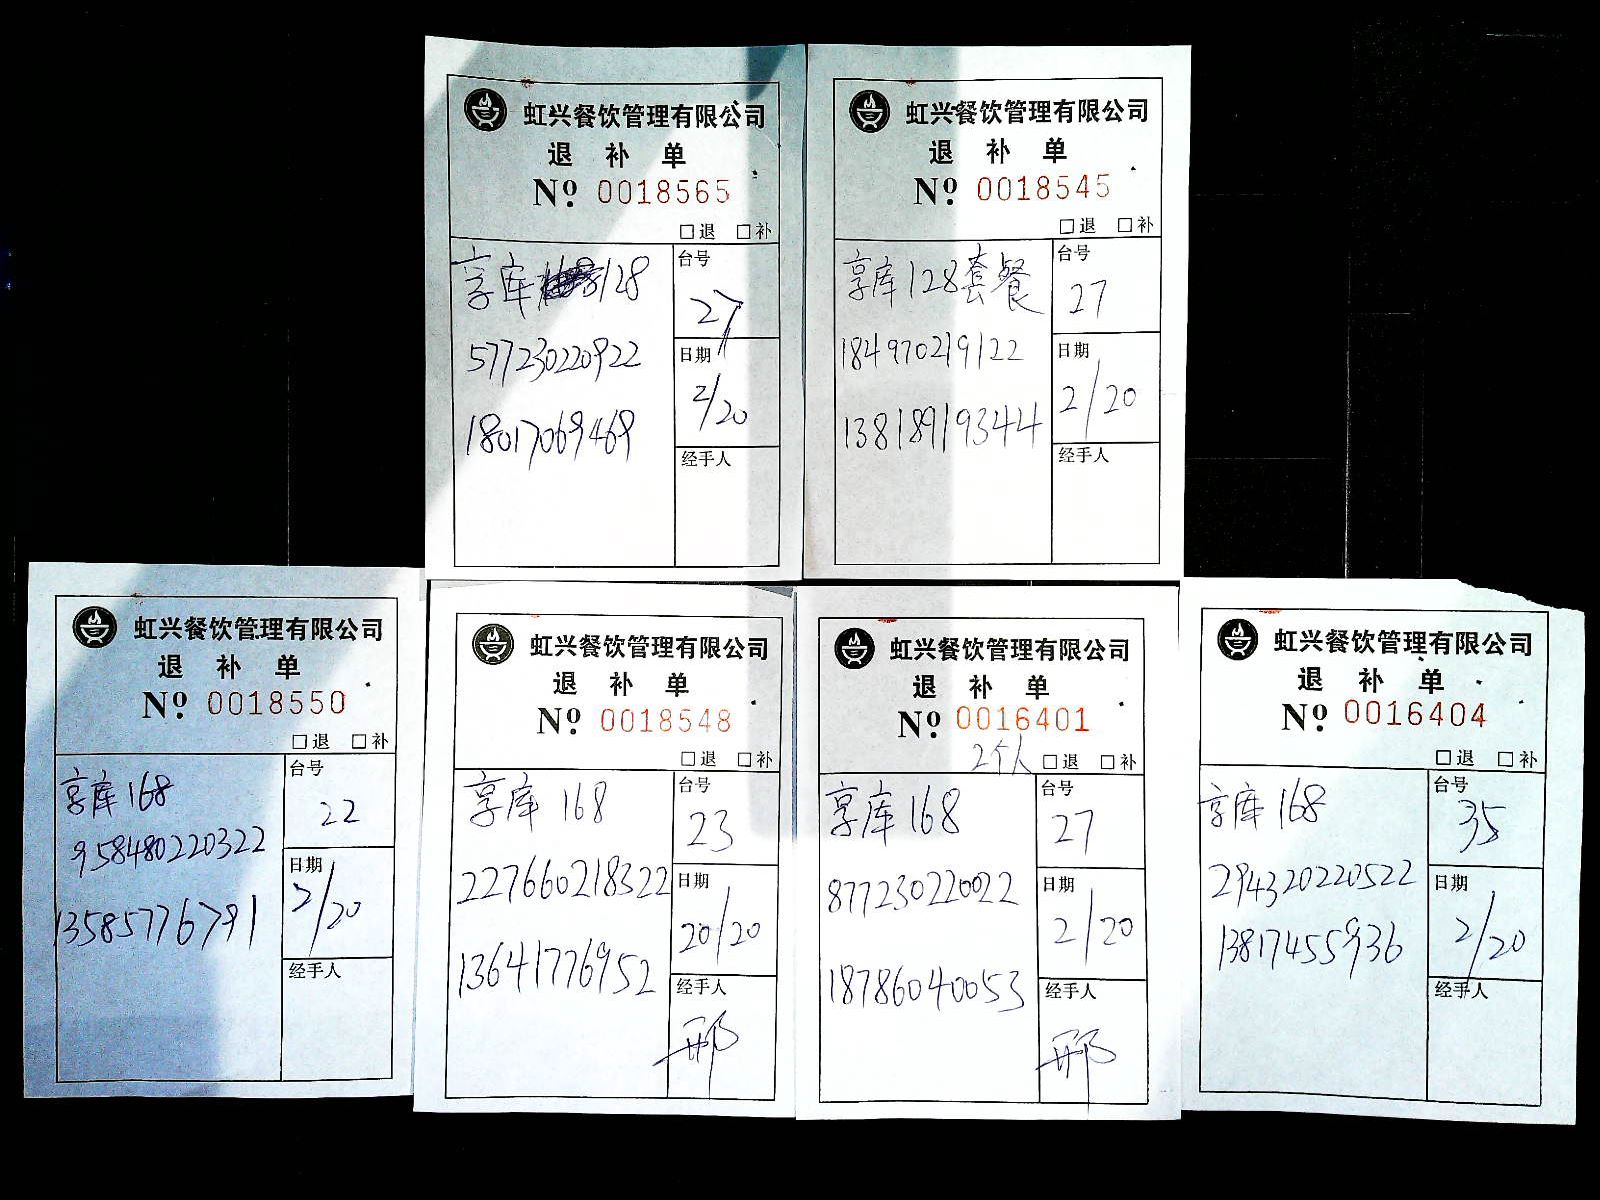 虹兴餐饮管理有限公司
退 补 单
Nº. 0018565
□退 □补
享库 128
577230220922
18017069469
台号
27
日期
2/20
经手人
虹兴餐饮管理有限公司
退 补 单
Nº. 0018545
□退 □补
享库128套餐
184970219122
13818919344
台号
27
日期
2/20
经手人
虹兴餐饮管理有限公司
退 补 单
Nº. 0018550
□退 □补
享库168
958480220322
13585776791
台号
22
日期
2/20
经手人
虹兴餐饮管理有限公司
退 补 单
Nº. 0018548
□退 □补
享库 168
227660218322
13641776952
台号
23
日期
20/20
经手人
邢
虹兴餐饮管理有限公司
退 补 单
Nº. 0016401
2个人 □退 □补
享库 168
877230220022
18786040053
台号
27
日期
2/20
经手人
邢
虹兴餐饮管理有限公司
退 补 单
Nº. 0016404
□退 □补
享库 168
294320220522
13817455936
台号
35
日期
2/20
经手人